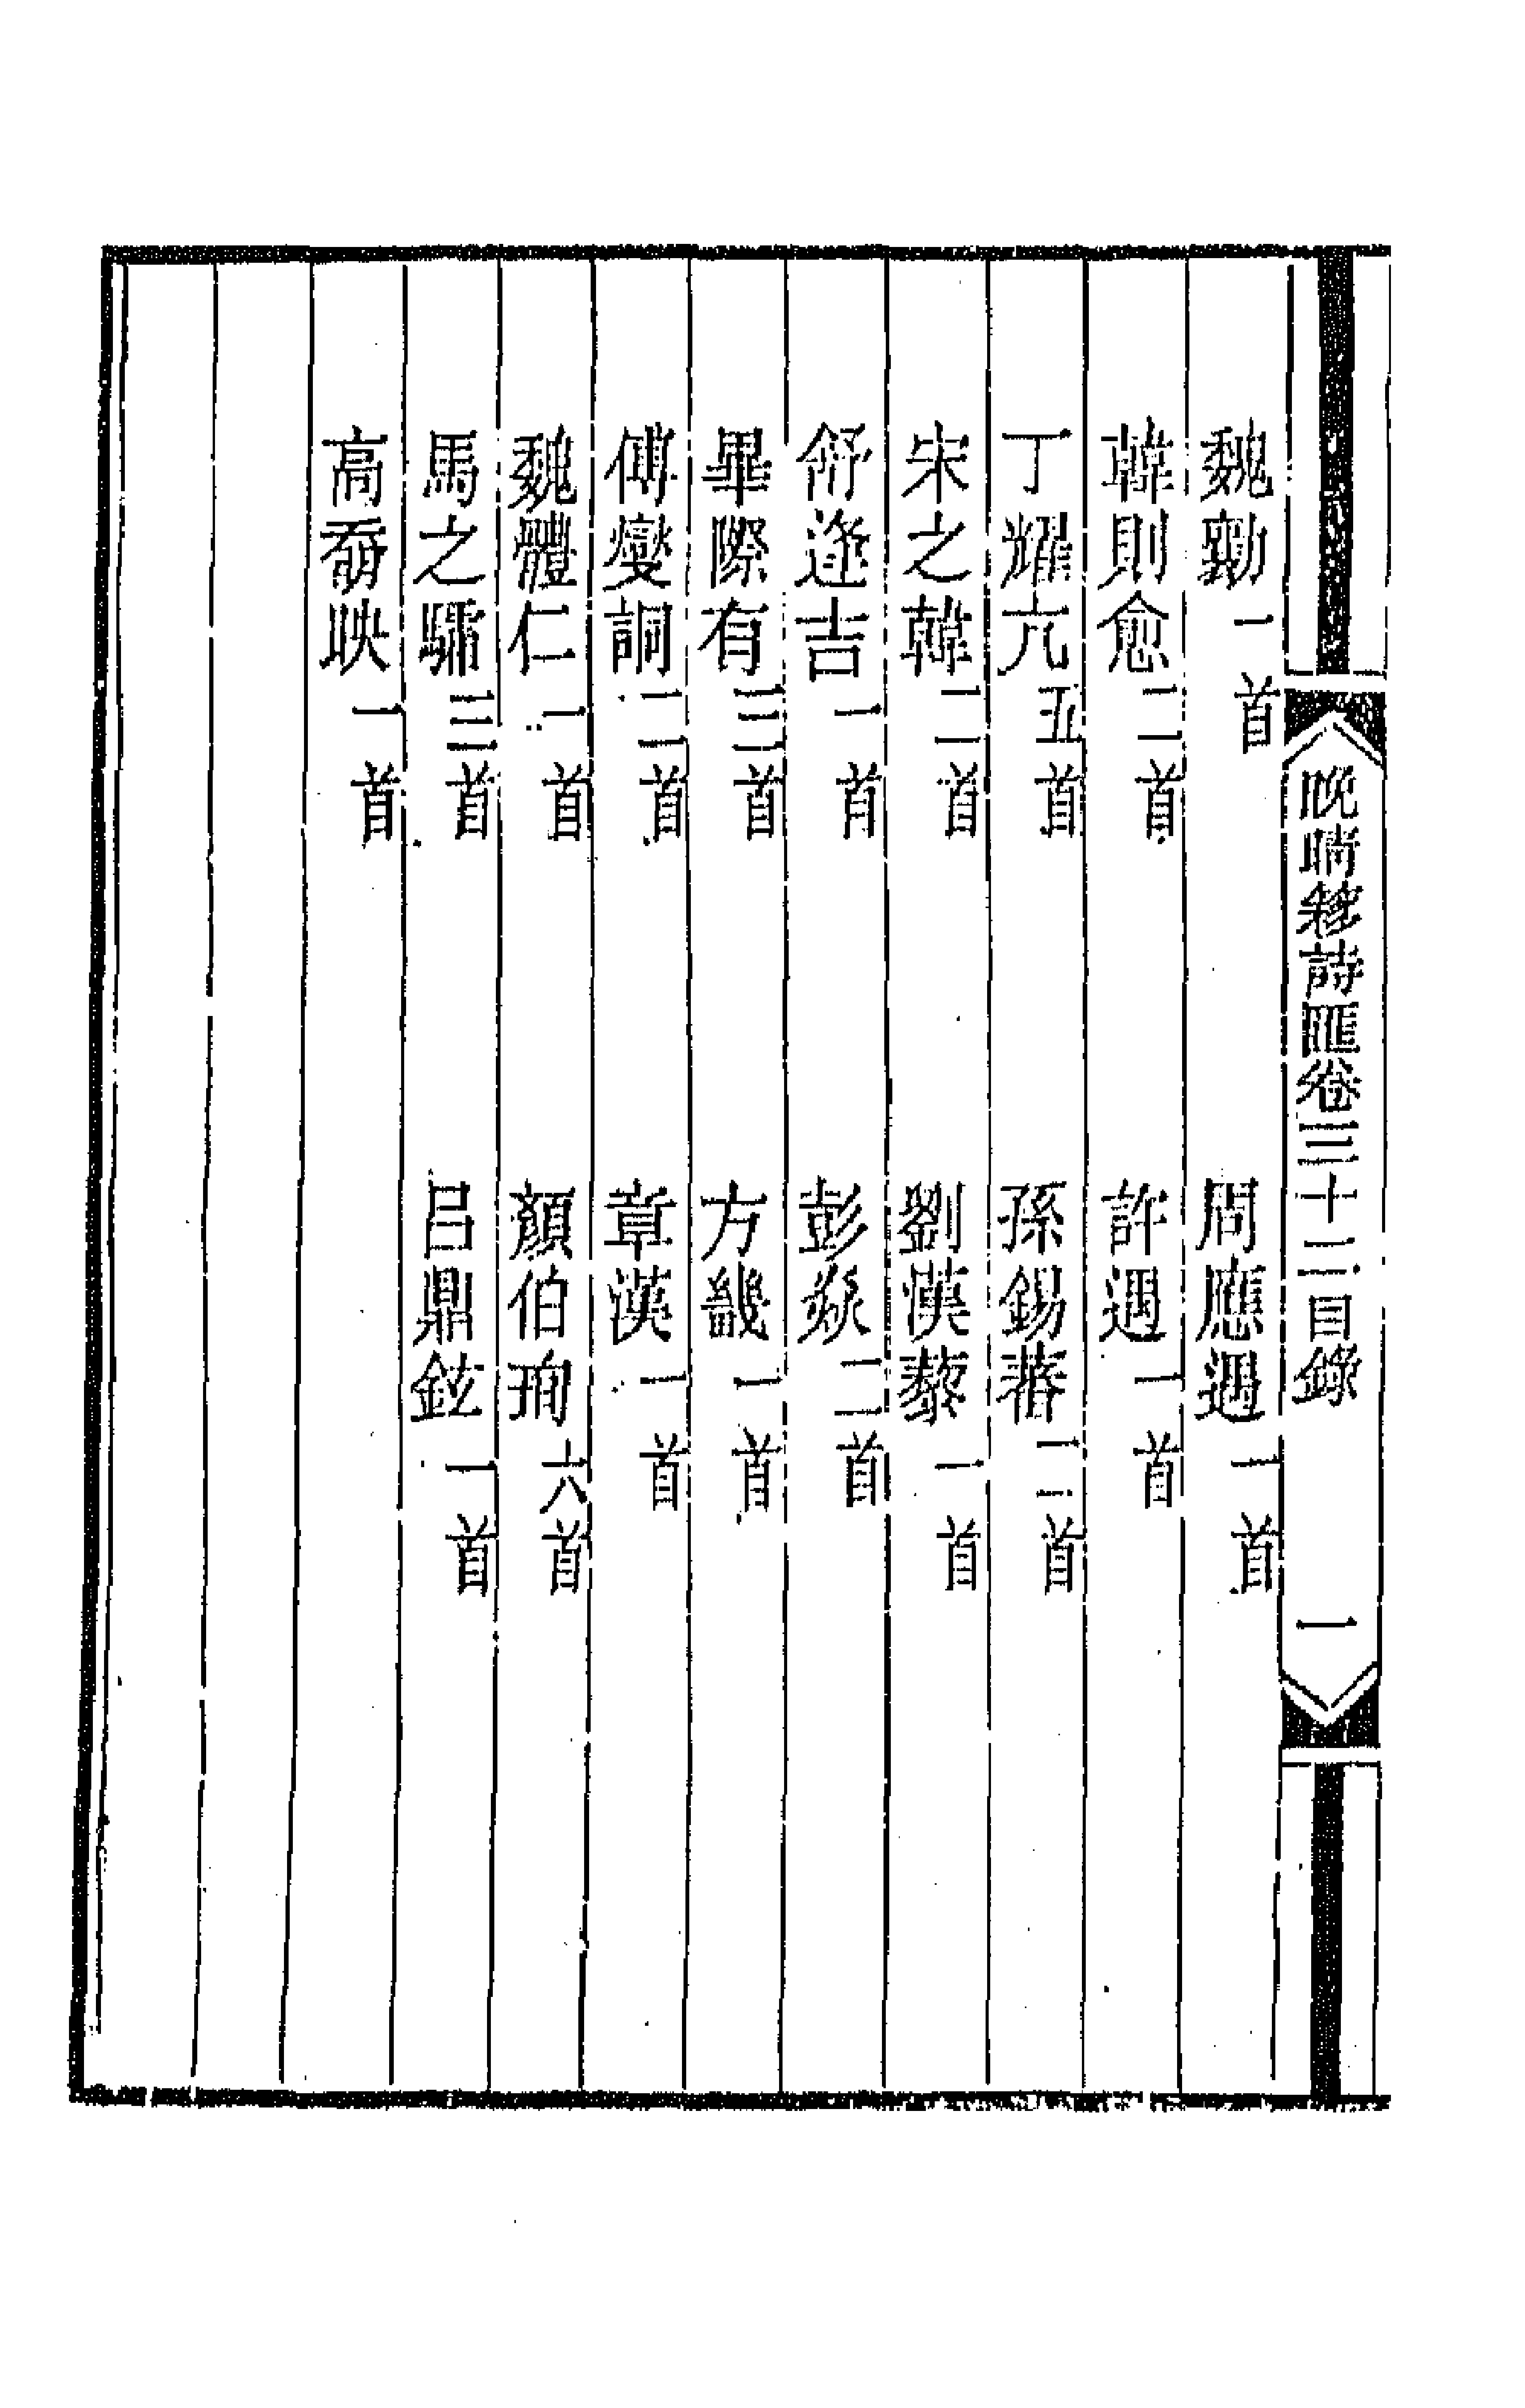 晚晴簃詩匯卷三十二目錄 一
魏勷一首 周應遇一首
韓則愈二首 許遇一首
丁耀亢五首 孫錫蕃二首
宋之韓二首 劉漢藜一首
舒逢吉一首 彭㷍二首
畢際有三首 方畿一首
傅燮詷二首 章漢一首
魏體仁一首 顏伯珣六首
馬之驦三首 呂鼎鉉一首
高奣映一首